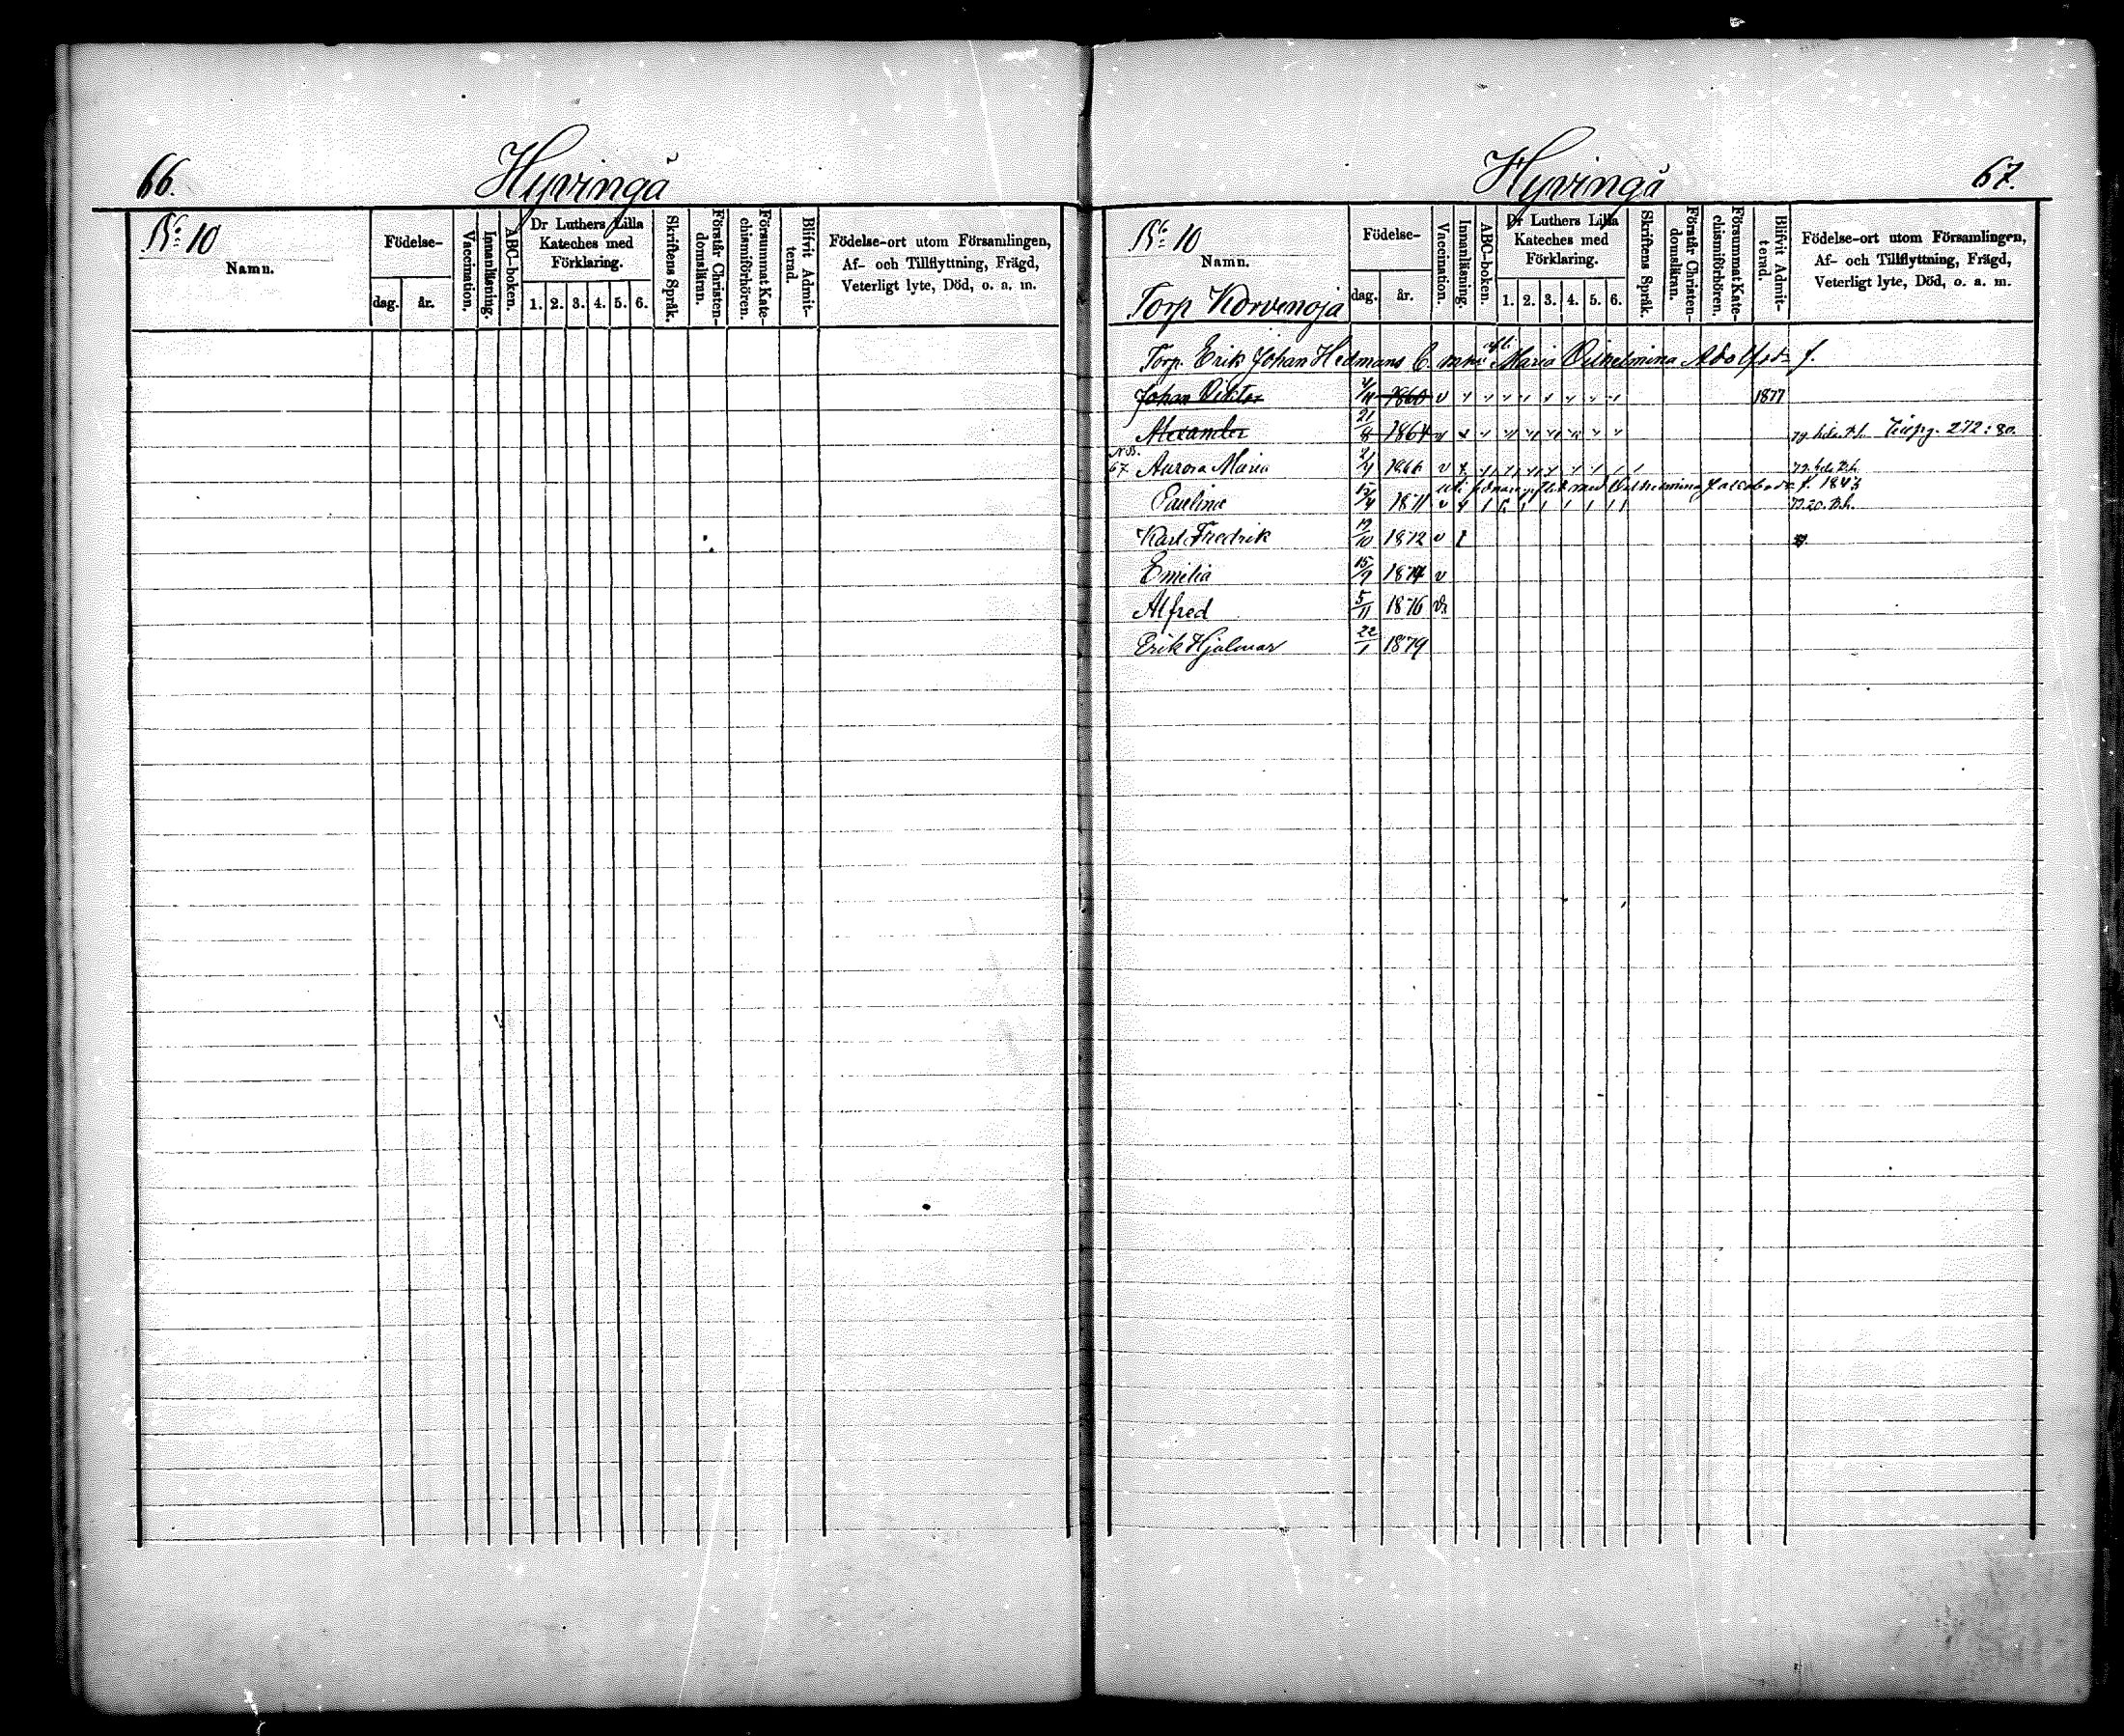 66.
Hyvingå
No 10
Namn.
Födelse-
dag.
år.
Vaccination.
Innanläsning.
ABC-boken.
Dr Luthers Lilla
Kateches med
Förklaring.
1. 2. 3. 4. 5. 6.
Skriftens Språk.
Förstår Christen-
domsläran.
Försummat Kate-
chismiförhören.
Blifvit Admit-
terad.
Födelse-ort utom Församlingen,
Af- och Tillflyttning, Frägd,
Veterligt lyte, Död, o. a. m.
Hyvingå
67.
No 10
Namn.
Torp Korvenoja
Födelse-
dag.
år.
Vaccination.
Innanläsning.
ABC-boken.
Dr Luthers Lilla
Kateches med
Förklaring.
1. 2. 3. 4. 5. 6.
Skriftens Språk.
Förstår Christen-
domsläran.
Försummat Kate-
chismiförhören.
Blifvit Admit-
terad.
Födelse-ort utom Församlingen,
Af- och Tillflyttning, Frägd,
Veterligt lyte, Död, o. a. m.
Torp. Erik Johan Hedmans Maria Vilhelmina Adolfsdr f.
Johan Viktor 1860 v 1877
Alexander 21/8 1864 272: 80.
NB. 67 Aurora Maria 2/4 1866 v
med Vilhelmina Jakobsdr f. 1843
Paulina 15/4 1871 v
Karl Fredrik 19/10 1872 v
Emilia 15/9 1874 v
Alfred 5/11 1876 v
Erik Hjalmar 22/1 1879